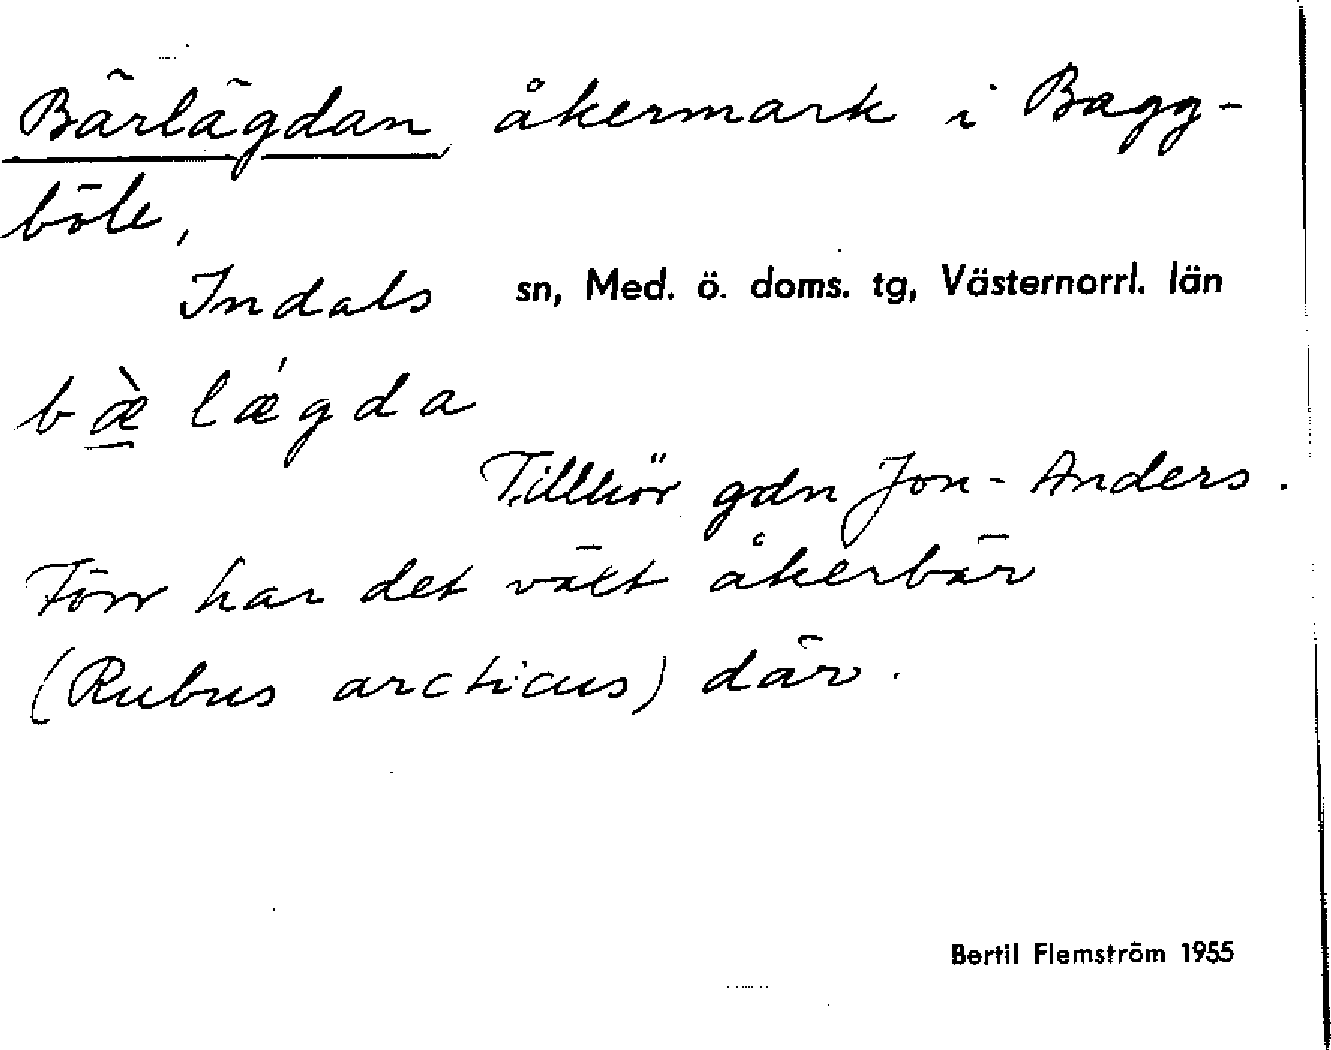 Bärlägdan åkermark i Bagg-
böle,
Indals sn, Med. ö. doms. tg, Västernorrl. län
bæ̀ lǽgda
Tillhör gdn Jon-Anders.
Förr har det växt åkerbär
(Rubus arcticus) där.
Bertil Flemström 1955